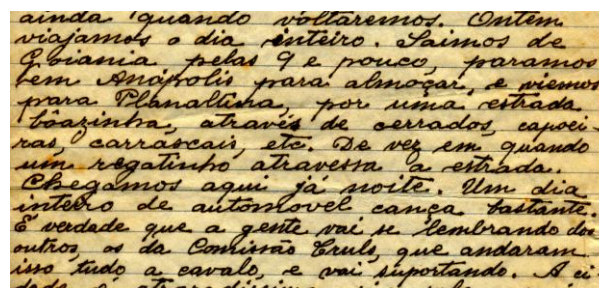 ainda quando voltaremos. Ontem
viajamos o dia inteiro. Saimos de
Goiania pelas 9 e pouco, paramos
em Anápolis para almoçar, e viemos
para Planaltina, por uma estrada
bôazinha, através de cerrados, capoei-
ras, carrascais, etc. De vez em quando
um regatinho atravessa a estrada.
Chegamos aqui já noite. Um dia
inteiro de automovel cança bastante.
É verdade que a gente vai se lembrando dos
outros, os da Comissão Cruls, que andaram
isso tudo a cavalo, e vai suportando. A ci-
dade é atrazadissima